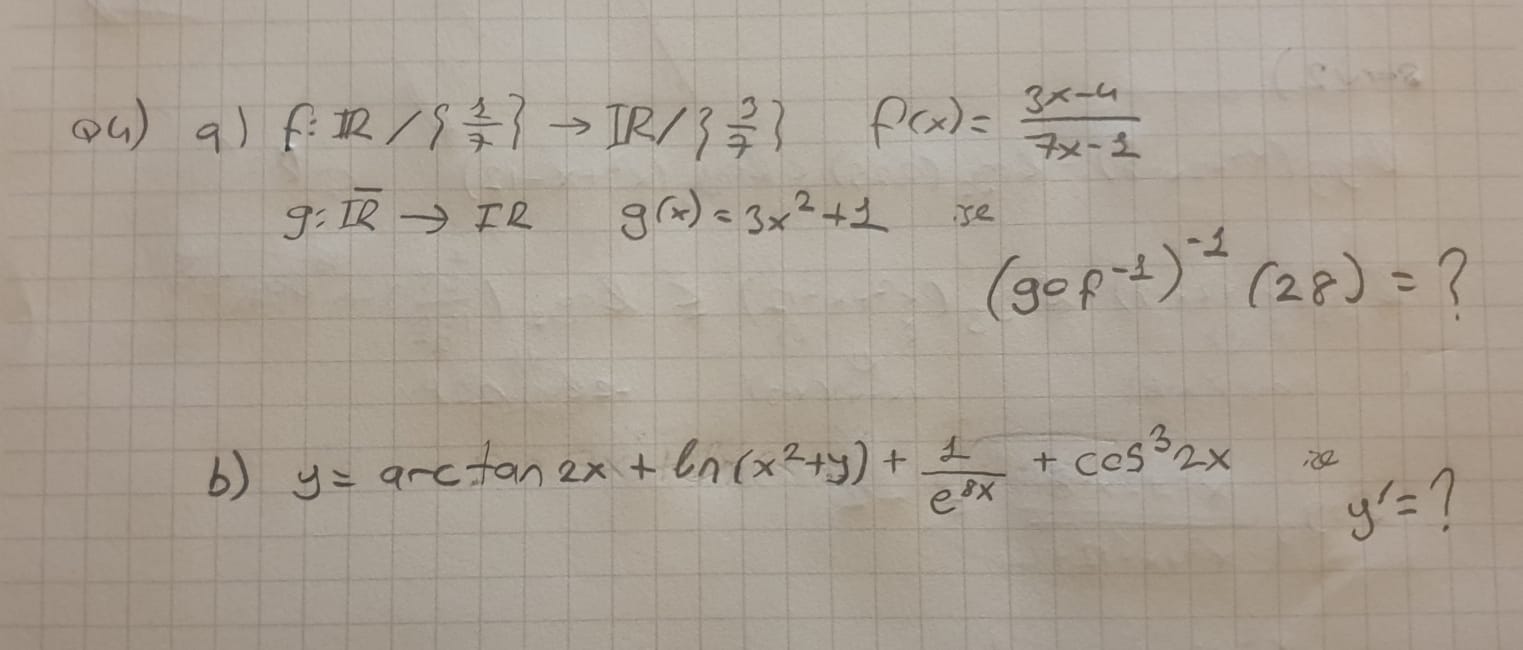 Q4) a) f: IR / { 1/7 } → IR / { 3/7 } f(x) = (3x-4)/(7x-1)
g: IR̅ → IR g(x) = 3x² + 1 ise
(gof⁻¹)⁻¹ (28) = ?
b) y = arctan 2x + ln(x²+y) + 1/e⁸ˣ + cos³2x ise
y' = ?